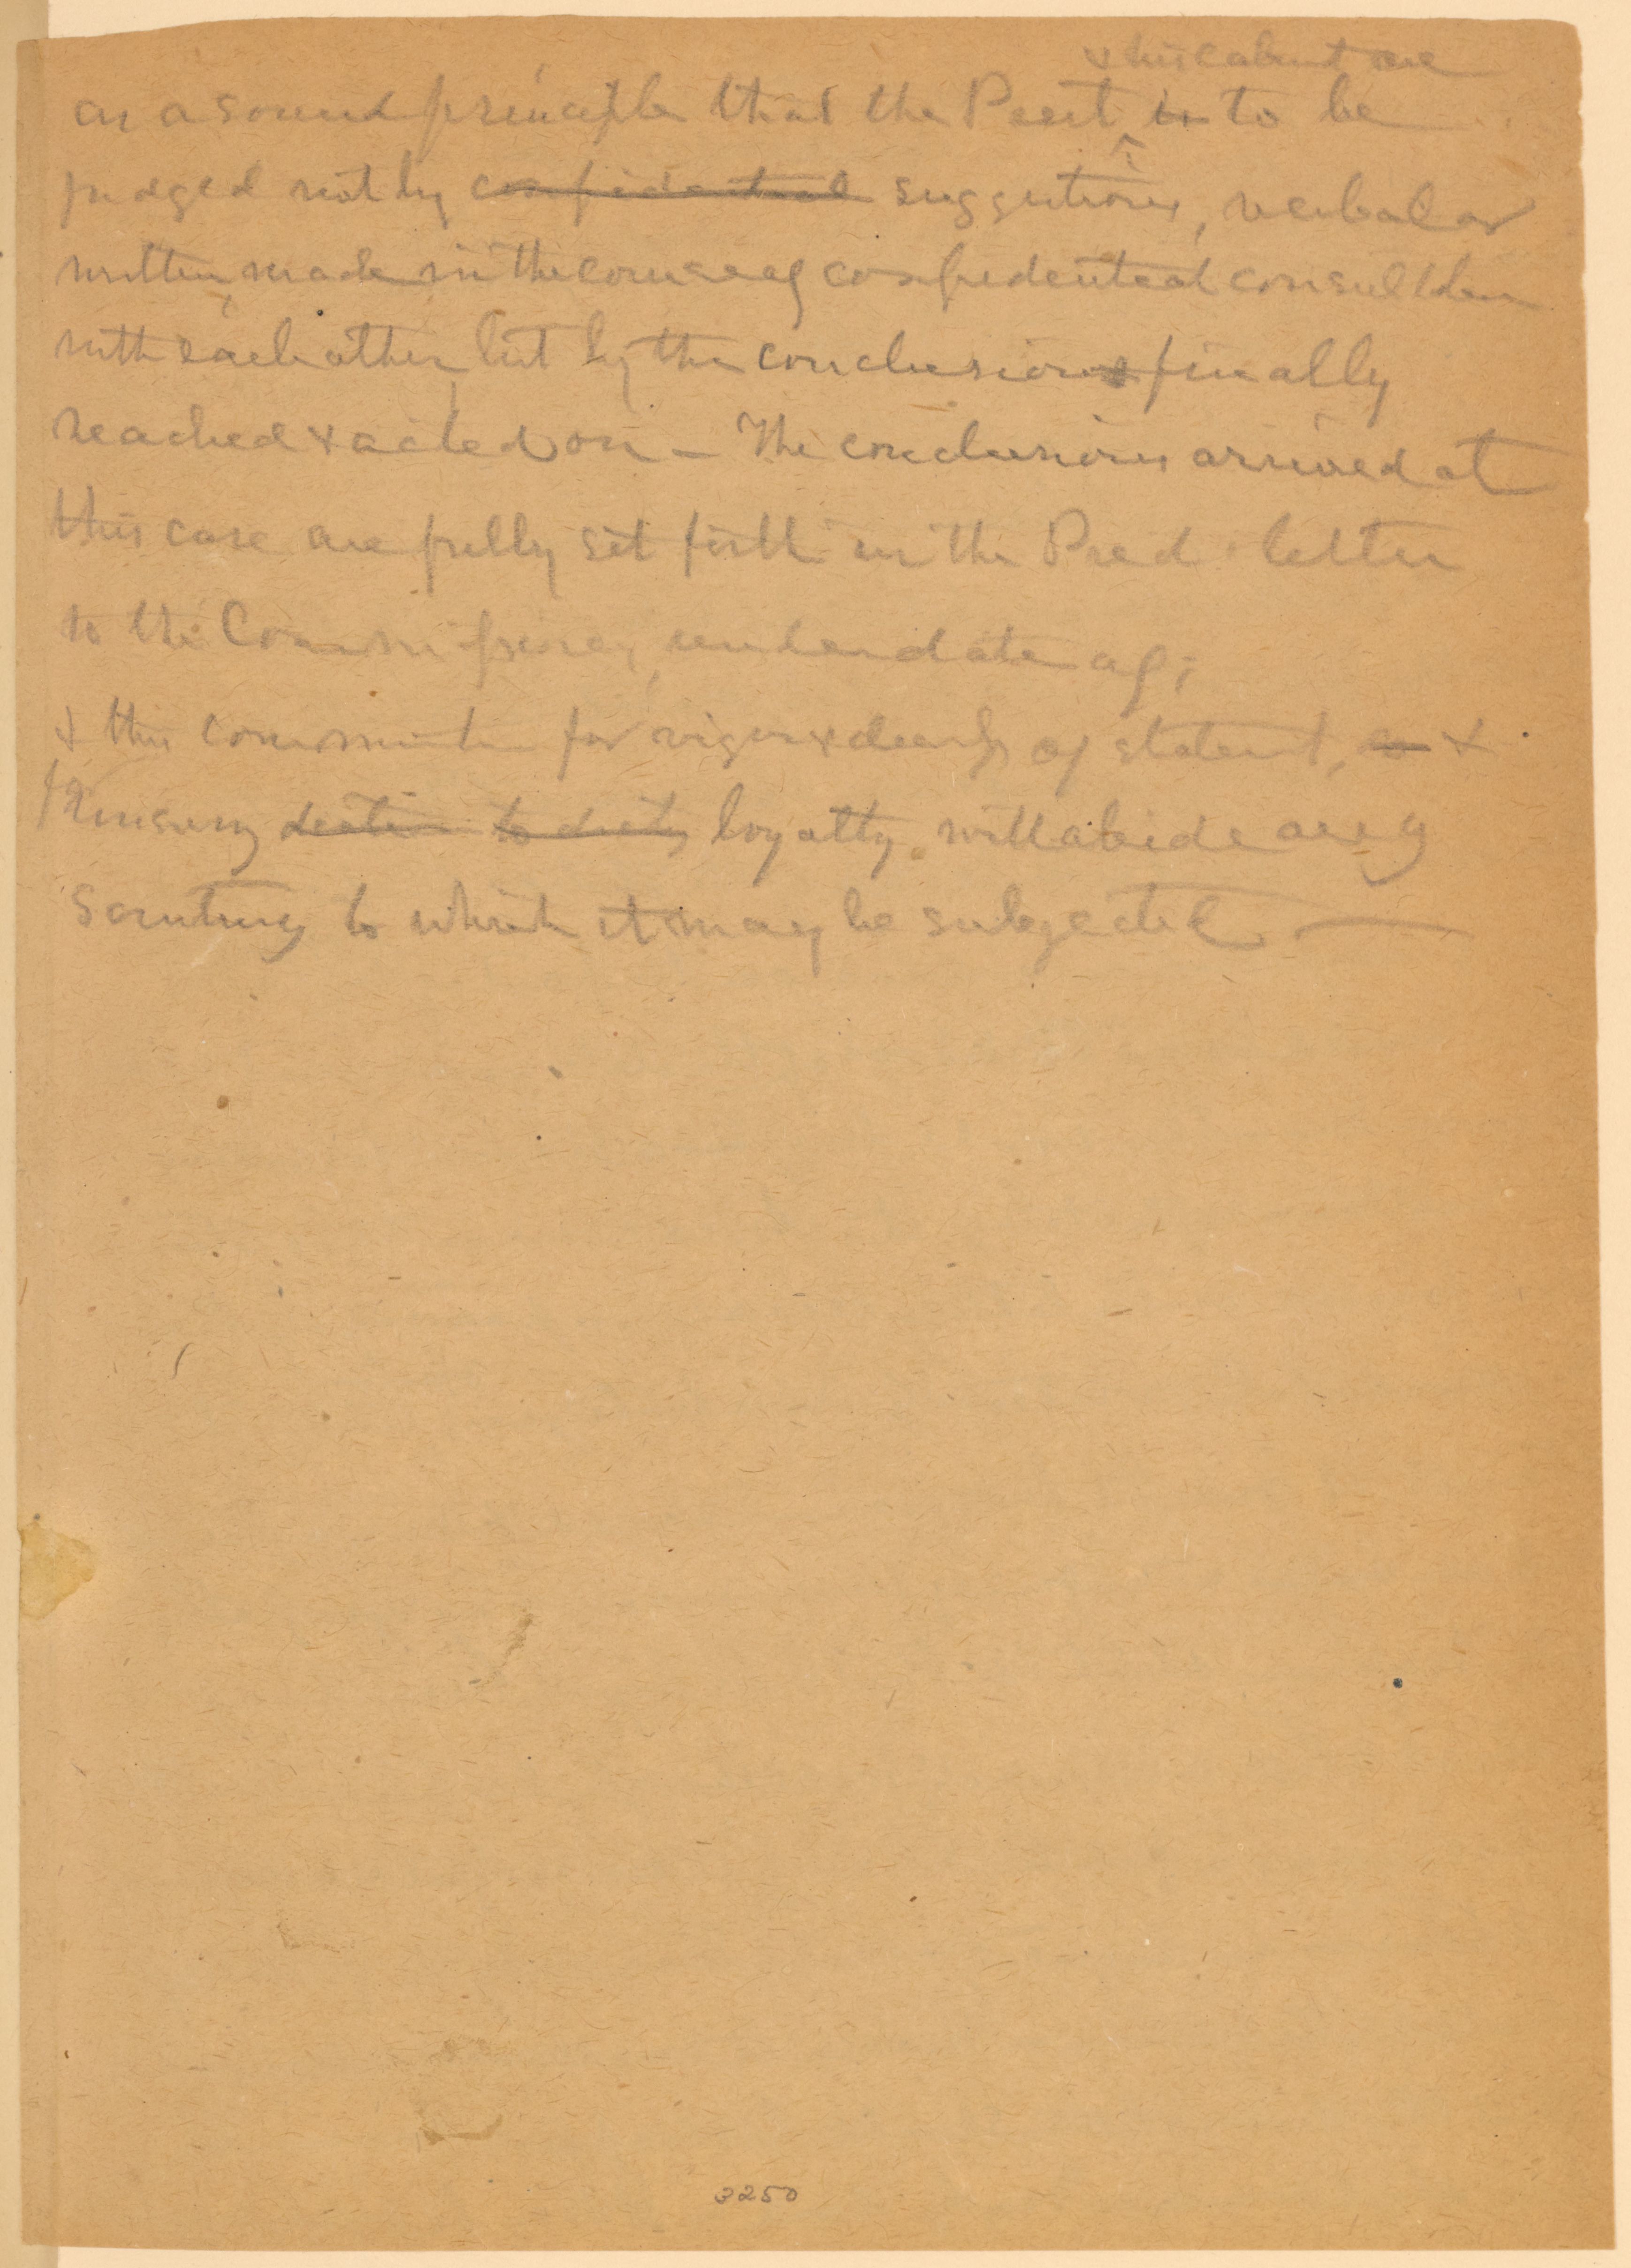 & his cabinet are
as a sound principle that the Presit is to be
judged not by confidential suggestions, verbal or
written, made in the course of confidential consultation
with each other, but by the conclusions finally
reached & acted on – The conclusions arrived at
this case are fully set forth in the Pred letter
to the Commissioner, under date of;
& this for vigor & of statemt, &
loyalty will abide any
scrutiny to which it may be subjected. —
3250